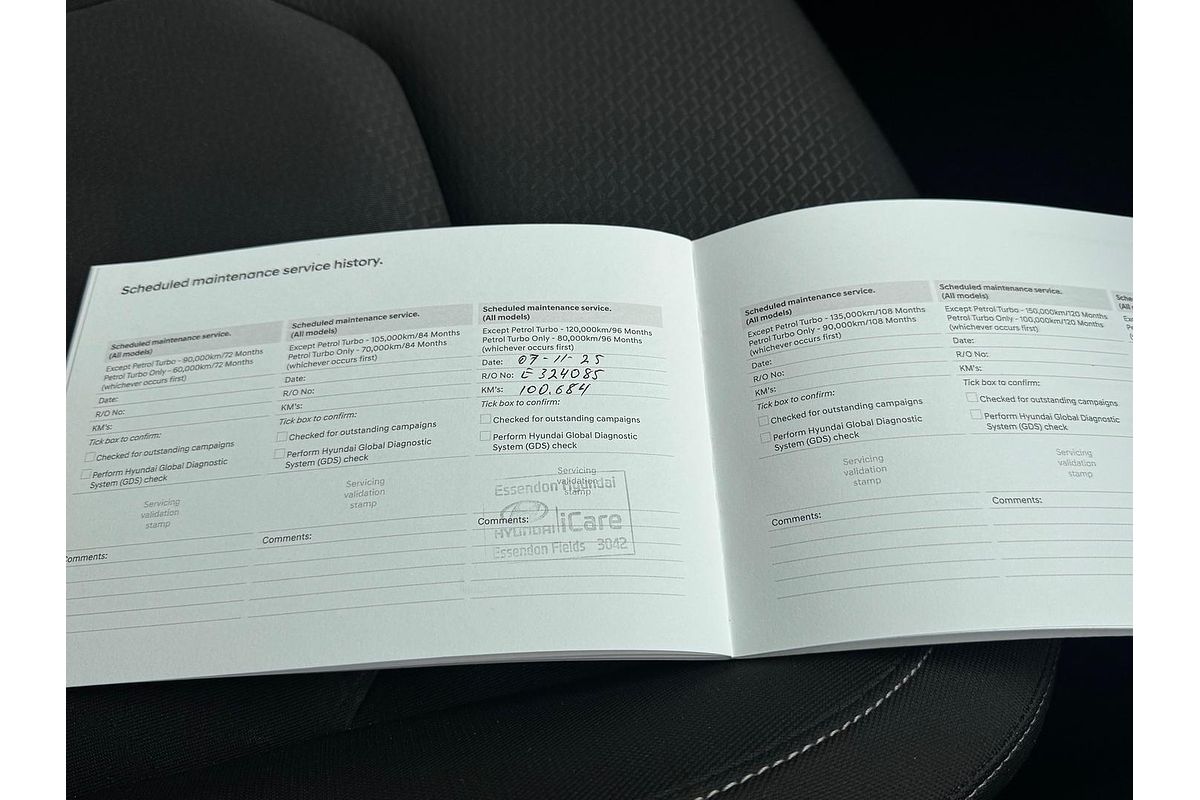 Scheduled maintenance service history.
Scheduled maintenance service.
(All models)
Except Petrol Turbo - 90,000km/72 Months
Petrol Turbo Only - 60,000km/72 Months
(whichever occurs first)
Date:
R/O No:
KM's:
Tick box to confirm:
Checked for outstanding campaigns
Perform Hyundai Global Diagnostic
System (GDS) check
Servicing
validation
stamp
Comments:
Scheduled maintenance service.
(All models)
Except Petrol Turbo - 105,000km/84 Months
Petrol Turbo Only - 70,000km/84 Months
(whichever occurs first)
Date:
R/O No:
KM's:
Tick box to confirm:
Checked for outstanding campaigns
Perform Hyundai Global Diagnostic
System (GDS) check
Servicing
validation
stamp
Comments:
Scheduled maintenance service.
(All models)
Except Petrol Turbo - 120,000km/96 Months
Petrol Turbo Only - 80,000km/96 Months
(whichever occurs first)
Date: 07-11-25
R/O No: E324085
KM's: 100.684
Tick box to confirm:
Checked for outstanding campaigns
Perform Hyundai Global Diagnostic
System (GDS) check
Servicing
validation
stamp
Essendon Hyundai
HYUNDAI iCare
Essendon Fields 3042
Comments:
Scheduled maintenance service.
(All models)
Except Petrol Turbo - 135,000km/108 Months
Petrol Turbo Only - 90,000km/108 Months
(whichever occurs first)
Date:
R/O No:
KM's:
Tick box to confirm:
Checked for outstanding campaigns
Perform Hyundai Global Diagnostic
System (GDS) check
Servicing
validation
stamp
Comments:
Scheduled maintenance service.
(All models)
Except Petrol Turbo - 150,000km/120 Months
Petrol Turbo Only - 100,000km/120 Months
(whichever occurs first)
Date:
R/O No:
KM's:
Tick box to confirm:
Checked for outstanding campaigns
Perform Hyundai Global Diagnostic
System (GDS) check
Servicing
validation
stamp
Comments: